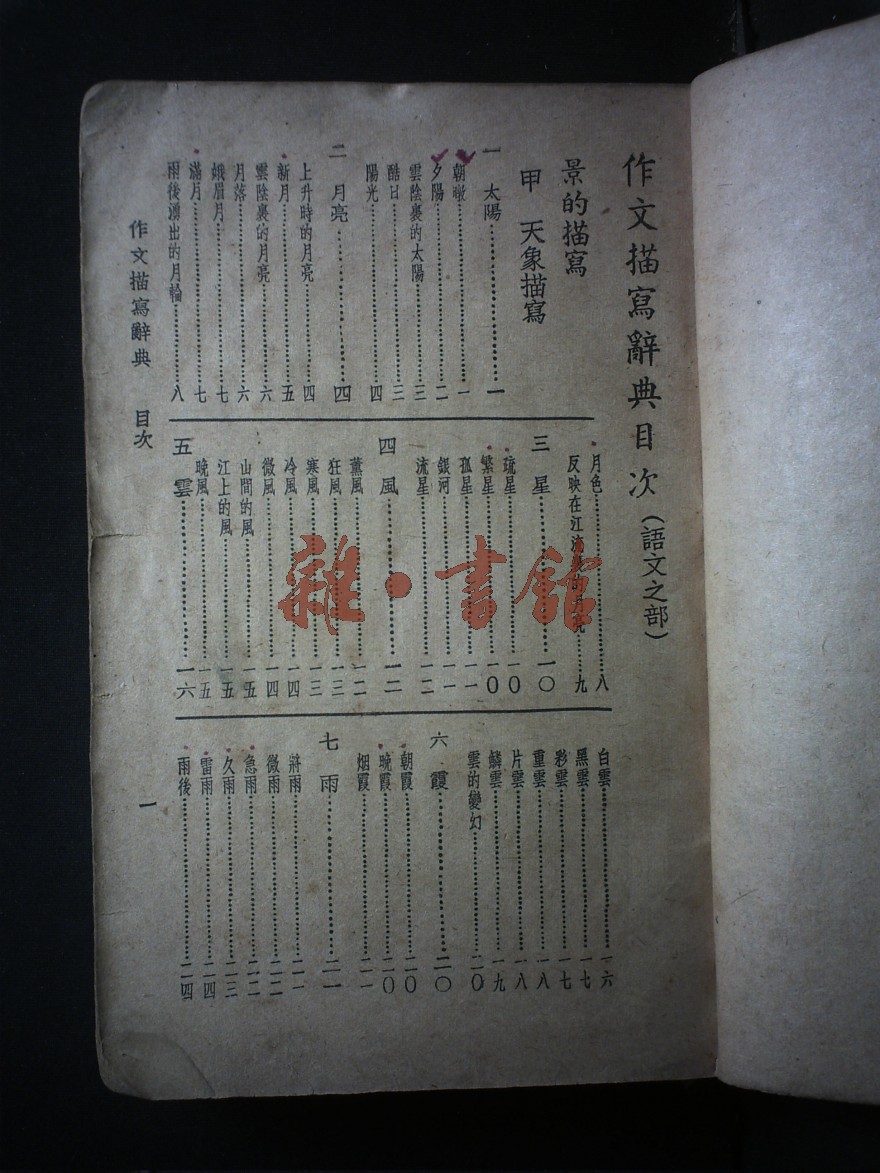 作文描寫辭典目次（語文之部）
景的描寫
甲　天象描寫
一　太陽……一
朝暾……一
夕陽……二
雲陰裏的太陽……三
酷日……三
陽光……四
二　月亮……四
上升時的月亮……四
新月……五
雲陰裏的月亮……六
月落……六
娥眉月……七
滿月……七
雨後湧出的月輪……八
月色……八
反映在江流裏的月亮……九
三　星……一〇
疏星……一〇
繁星……一〇
孤星……一一
銀河……一一
流星……一二
四　風……一二
薰風……一二
狂風……一三
寒風……一三
冷風……一四
微風……一四
山間的風……一五
江上的風……一五
晚風……一五
五　雲……一六
白雲……一六
黑雲……一七
彩雲……一七
重雲……一八
片雲……一八
鱗雲……一九
雲的變幻……二〇
六　霞……二〇
朝霞……二〇
晚霞……二〇
烟霞……二一
七　雨……二一
將雨……二一
微雨……二二
急雨……二二
久雨……二三
雷雨……二四
雨後……二四
作文描寫辭典　目次
一
雜·書館